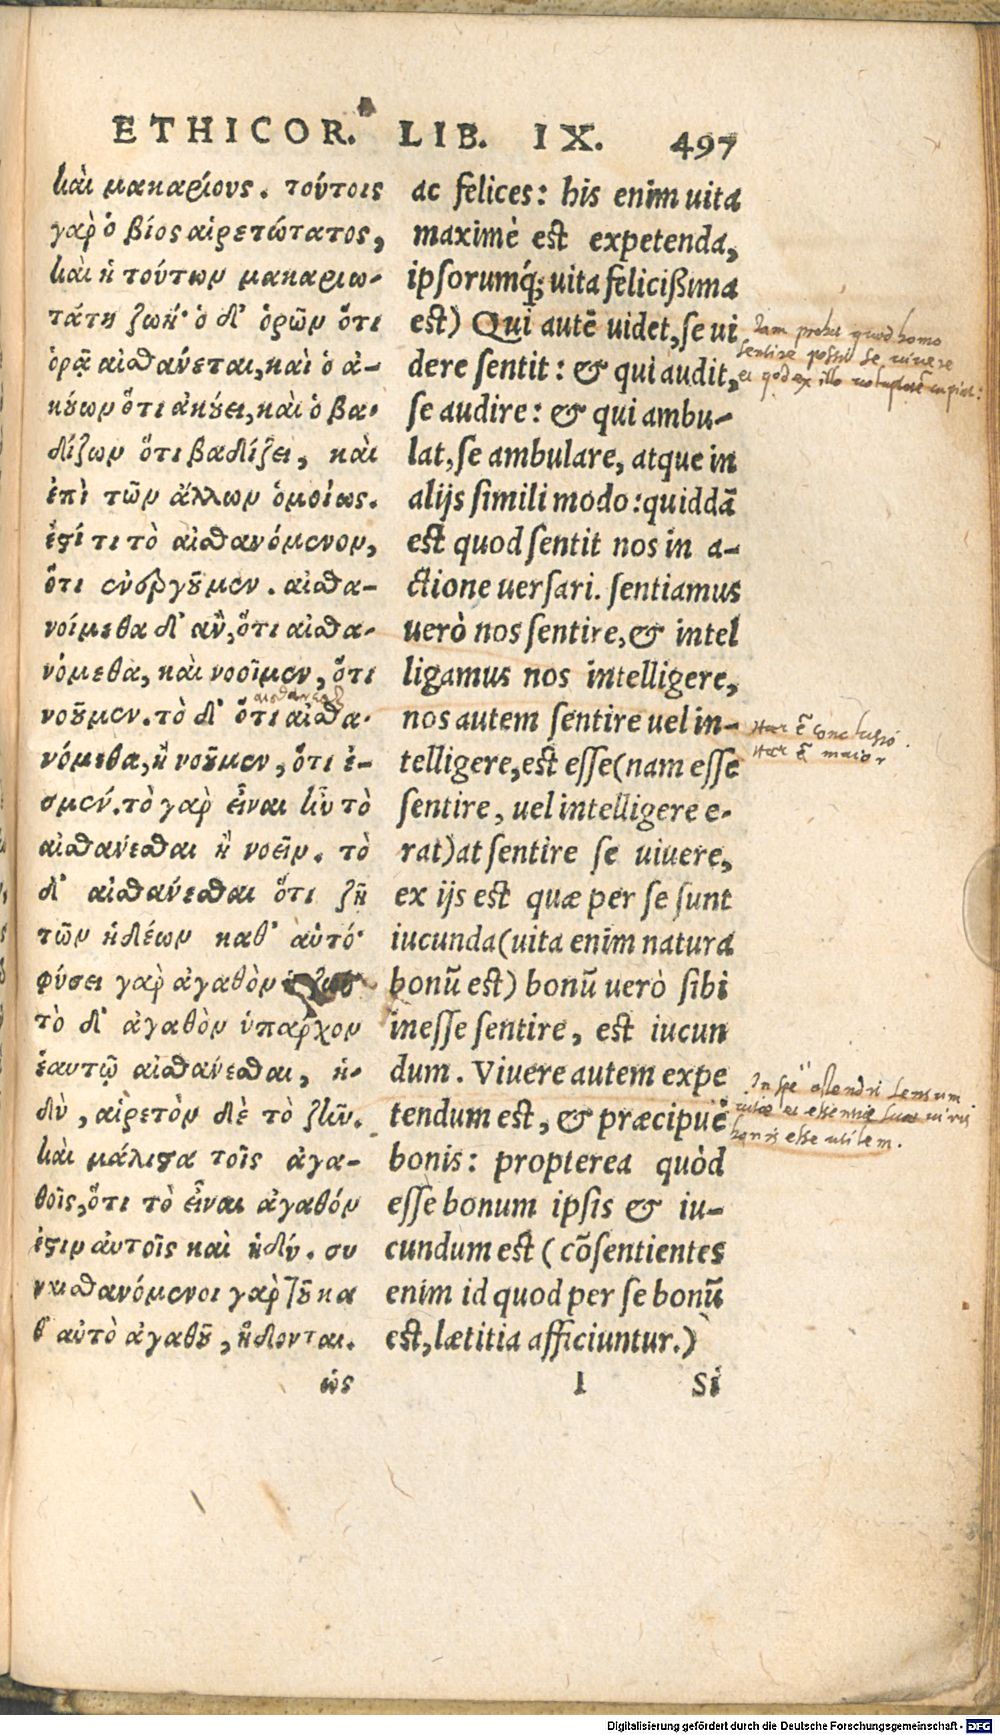 ETHICOR. LIB. IX. 497
καὶ μακαρίους. τούτοις
γὰρ ὁ βίος αἱρετώτατος,
καὶ ἡ τούτων μακαριω-
τάτη ζωή· ὁ δ' ὁρῶν ὅτι
ὁρᾷ αἰσθάνεται, καὶ ὁ ἀ-
κούων ὅτι ἀκούει, καὶ ὁ βα-
δίζων ὅτι βαδίζει, καὶ
ἐπὶ τῶν ἄλλων ὁμοίως.
ἐστί τι τὸ αἰσθανόμενον,
ὅτι ἐνεργοῦμεν. αἰσθα-
νοίμεθα δ' ἂν, ὅτι αἰσθα-
νόμεθα, καὶ νοοῖμεν, ὅτι
νοοῦμεν. τὸ δ' ὅτι αἰσθα-
νόμεθα, ἢ νοοῦμεν, ὅτι ἐ-
σμέν. τὸ γὰρ εἶναι ἦν τὸ
αἰσθάνεσθαι ἢ νοεῖν. τὸ
δ' αἰσθάνεσθαι ὅτι ζῇ
τῶν ἡδέων καθ' αὑτό·
φύσει γὰρ ἀγαθὸν
τὸ δ' ἀγαθὸν ὑπάρχον
ἑαυτῷ αἰσθάνεσθαι, ἡ-
δὺ, αἱρετὸν δὲ τὸ ζῆν.
καὶ μάλιστα τοῖς ἀγα-
θοῖς, ὅτι τὸ εἶναι ἀγαθόν
ἐστιν αὐτοῖς καὶ ἡδύ. συ
ναισθανόμενοι γὰρ τοῦ κα
θ' αὑτὸ ἀγαθοῦ, ἥδονται.
ὡς
ac felices: his enim uita
maximè est expetenda,
ipsorumq́; uita felicißima
est) Qui autē uidet, se ui
dere sentit: & qui audit,
se audire: & qui ambu-
lat, se ambulare, atque in
alijs simili modo: quiddā
est quod sentit nos in a-
ctione uersari. sentiamus
uerò nos sentire, & intel
ligamus nos intelligere,
nos autem sentire uel in-
telligere, est esse (nam esse
sentire, uel intelligere e-
rat) at sentire se uiuere,
ex ijs est quæ per se sunt
iucunda (uita enim natura
bonū est) bonū uerò sibi
inesse sentire, est iucun
dum. Viuere autem expe
tendum est, & præcipuè
bonis: propterea quòd
esse bonum ipsis & iu-
cundum est (cōsentientes
enim id quod per se bonū
est, lætitia afficiuntur.)
I Si
Iam probat quod homo
sentire possit se uiuere
et qod ex illo uoluptatē capiat:
Haec ē conclusio.
Haec ē maior
ostendit sensum
uitae et essentiae suae uiris
bonis esse utilem.